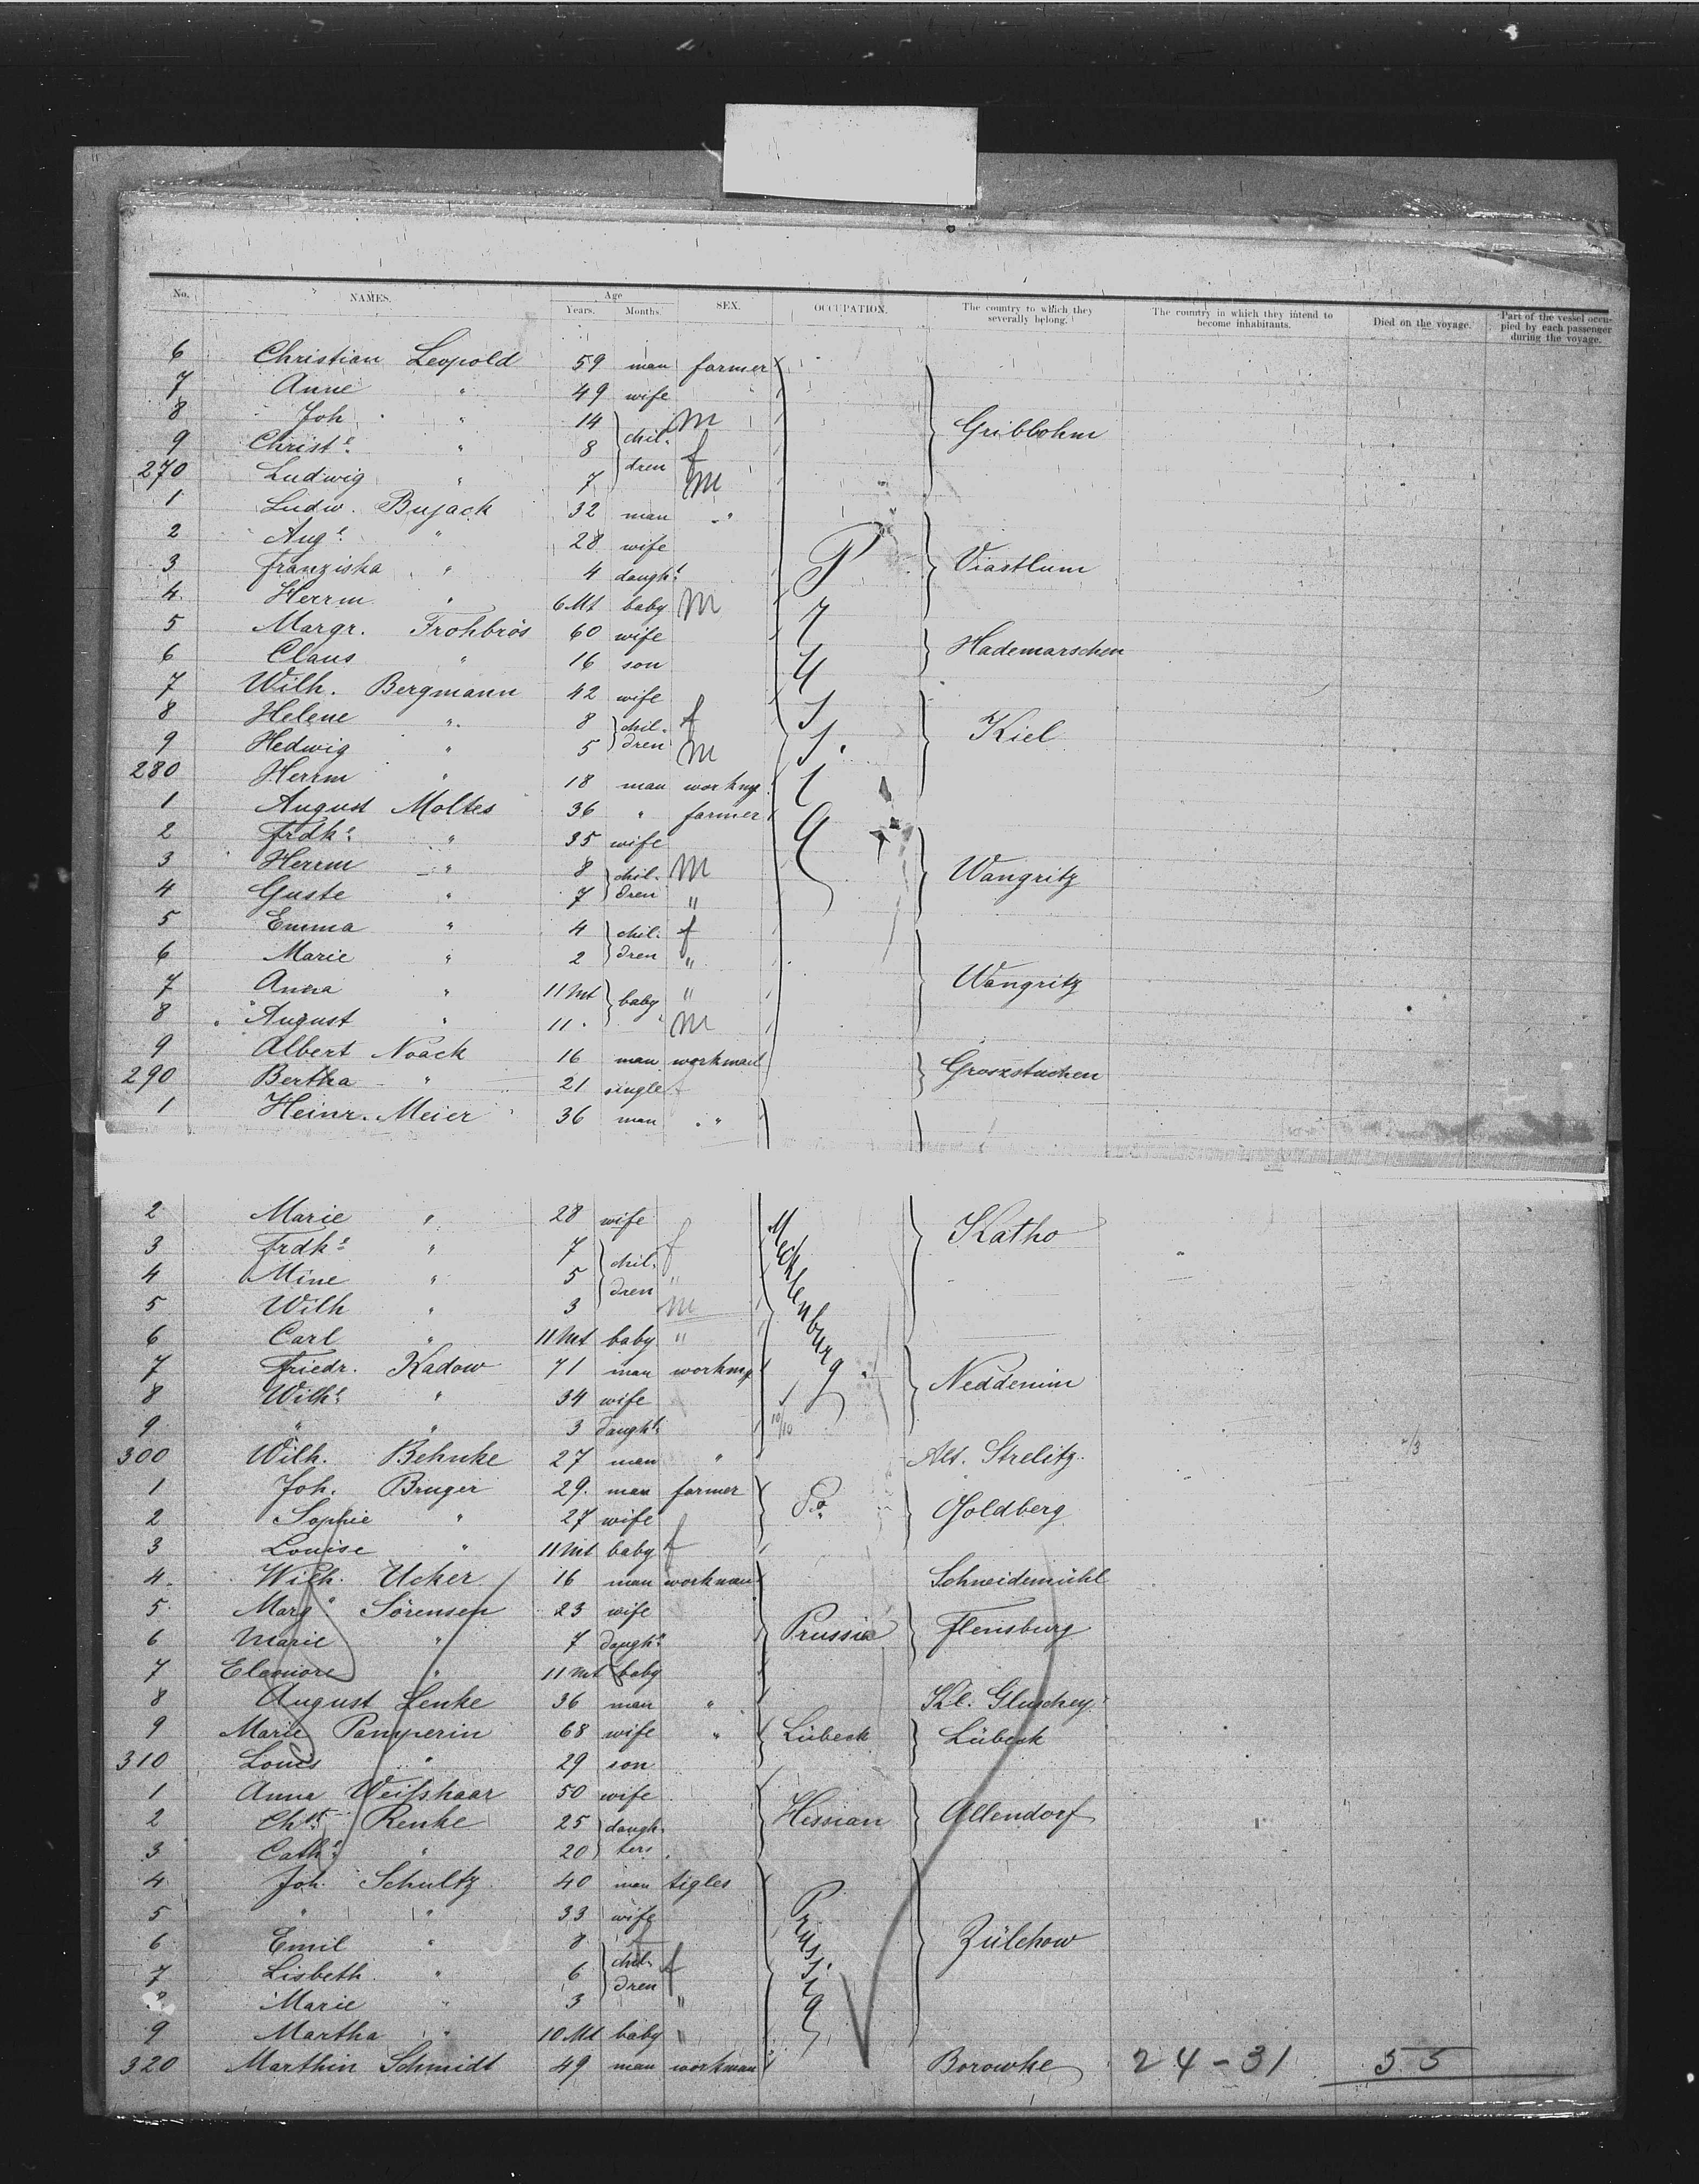 No. NAMES. Age Years. Months. SEX. OCCUPATION. The country to which they severally belong. The country in which they intend to become inhabitants. Died on the voyage. Part of the vessel occupied by each passenger during the voyage.
6 Christian Leopold 59 man farmer
7 Anne " 49 wife
8 Joh " 14 chil- m Gribbohm
9 Christe " 8 f
270 Ludwig " 7 dren m
1 Ludw. Bujack 32 man "
2 Auge " 28 wife Prussia
3 Franziska " 4 daught. Viastlum
4 Herrm " 6 Mt baby m
5 Margr. Frohbrös 60 wife Hademarschen
6 Claus " 16 son
7 Wilh. Bergmann 42 wife
8 Helene " 8 chil- f Kiel
9 Hedwig " 5 dren m
280 Herrm " 18 man workmn
1 August Moltes 36 " farmer
2 Frdke " 35 wife
3 Herrm " 8 chil- m Wangritz
4 Guste " 7 dren "
5 Emma " 4 chil- f
6 Marie " 2 dren "
7 Anna " 11 Mt baby " Wangritz
8 August " 11 " m
9 Albert Noack 16 man workman Groszstuchen
290 Bertha " 21 single f
1 Heinr. Meier 36 man "
2 Marie " 28 wife Mecklenburg Katho
3 Frdke " 7 chil- f
4 Mine " 5 "
5 Wilh " 3 dren m
6 Carl " 11 Mt baby "
7 Friedr. Kadow 71 man workmn Neddemin
8 Wilhe " 34 wife
9 " " 3 daught. 10/10
300 Wilh. Behnke 27 man " Alt. Strelitz
1 Joh. Bruger 29 man farmer Do. Goldberg
2 Sophie " 27 wife
3 Louise " 11 Mt baby f
4 Wilh. Ucker 16 man workman Schneidemühl
5 Marg Sörensen 23 wife Prussia Flensburg
6 Marie " 7 daught.
7 Eleonore " 11 Mt baby
8 August Lenke 36 man " Kl. Gluschey
9 Marie Pamperin 68 wife " Lübeck Lübeck
310 Louis " 29 son
1 Anna Weifshaar 50 wife
2 Renke 25 daugh- Hessian Allendorf
3 Cathe " 20 ters
4 Joh. Schultz 40 man tigles
5 " " 33 wife Prussia
6 Emil " 8 Zülchow
7 Lisbeth " 6 chil- f
8 Marie " 3 dren "
9 Martha " 10 Mt baby "
320 Marthin Schmidt 49 man workman Borowke 24-31 55